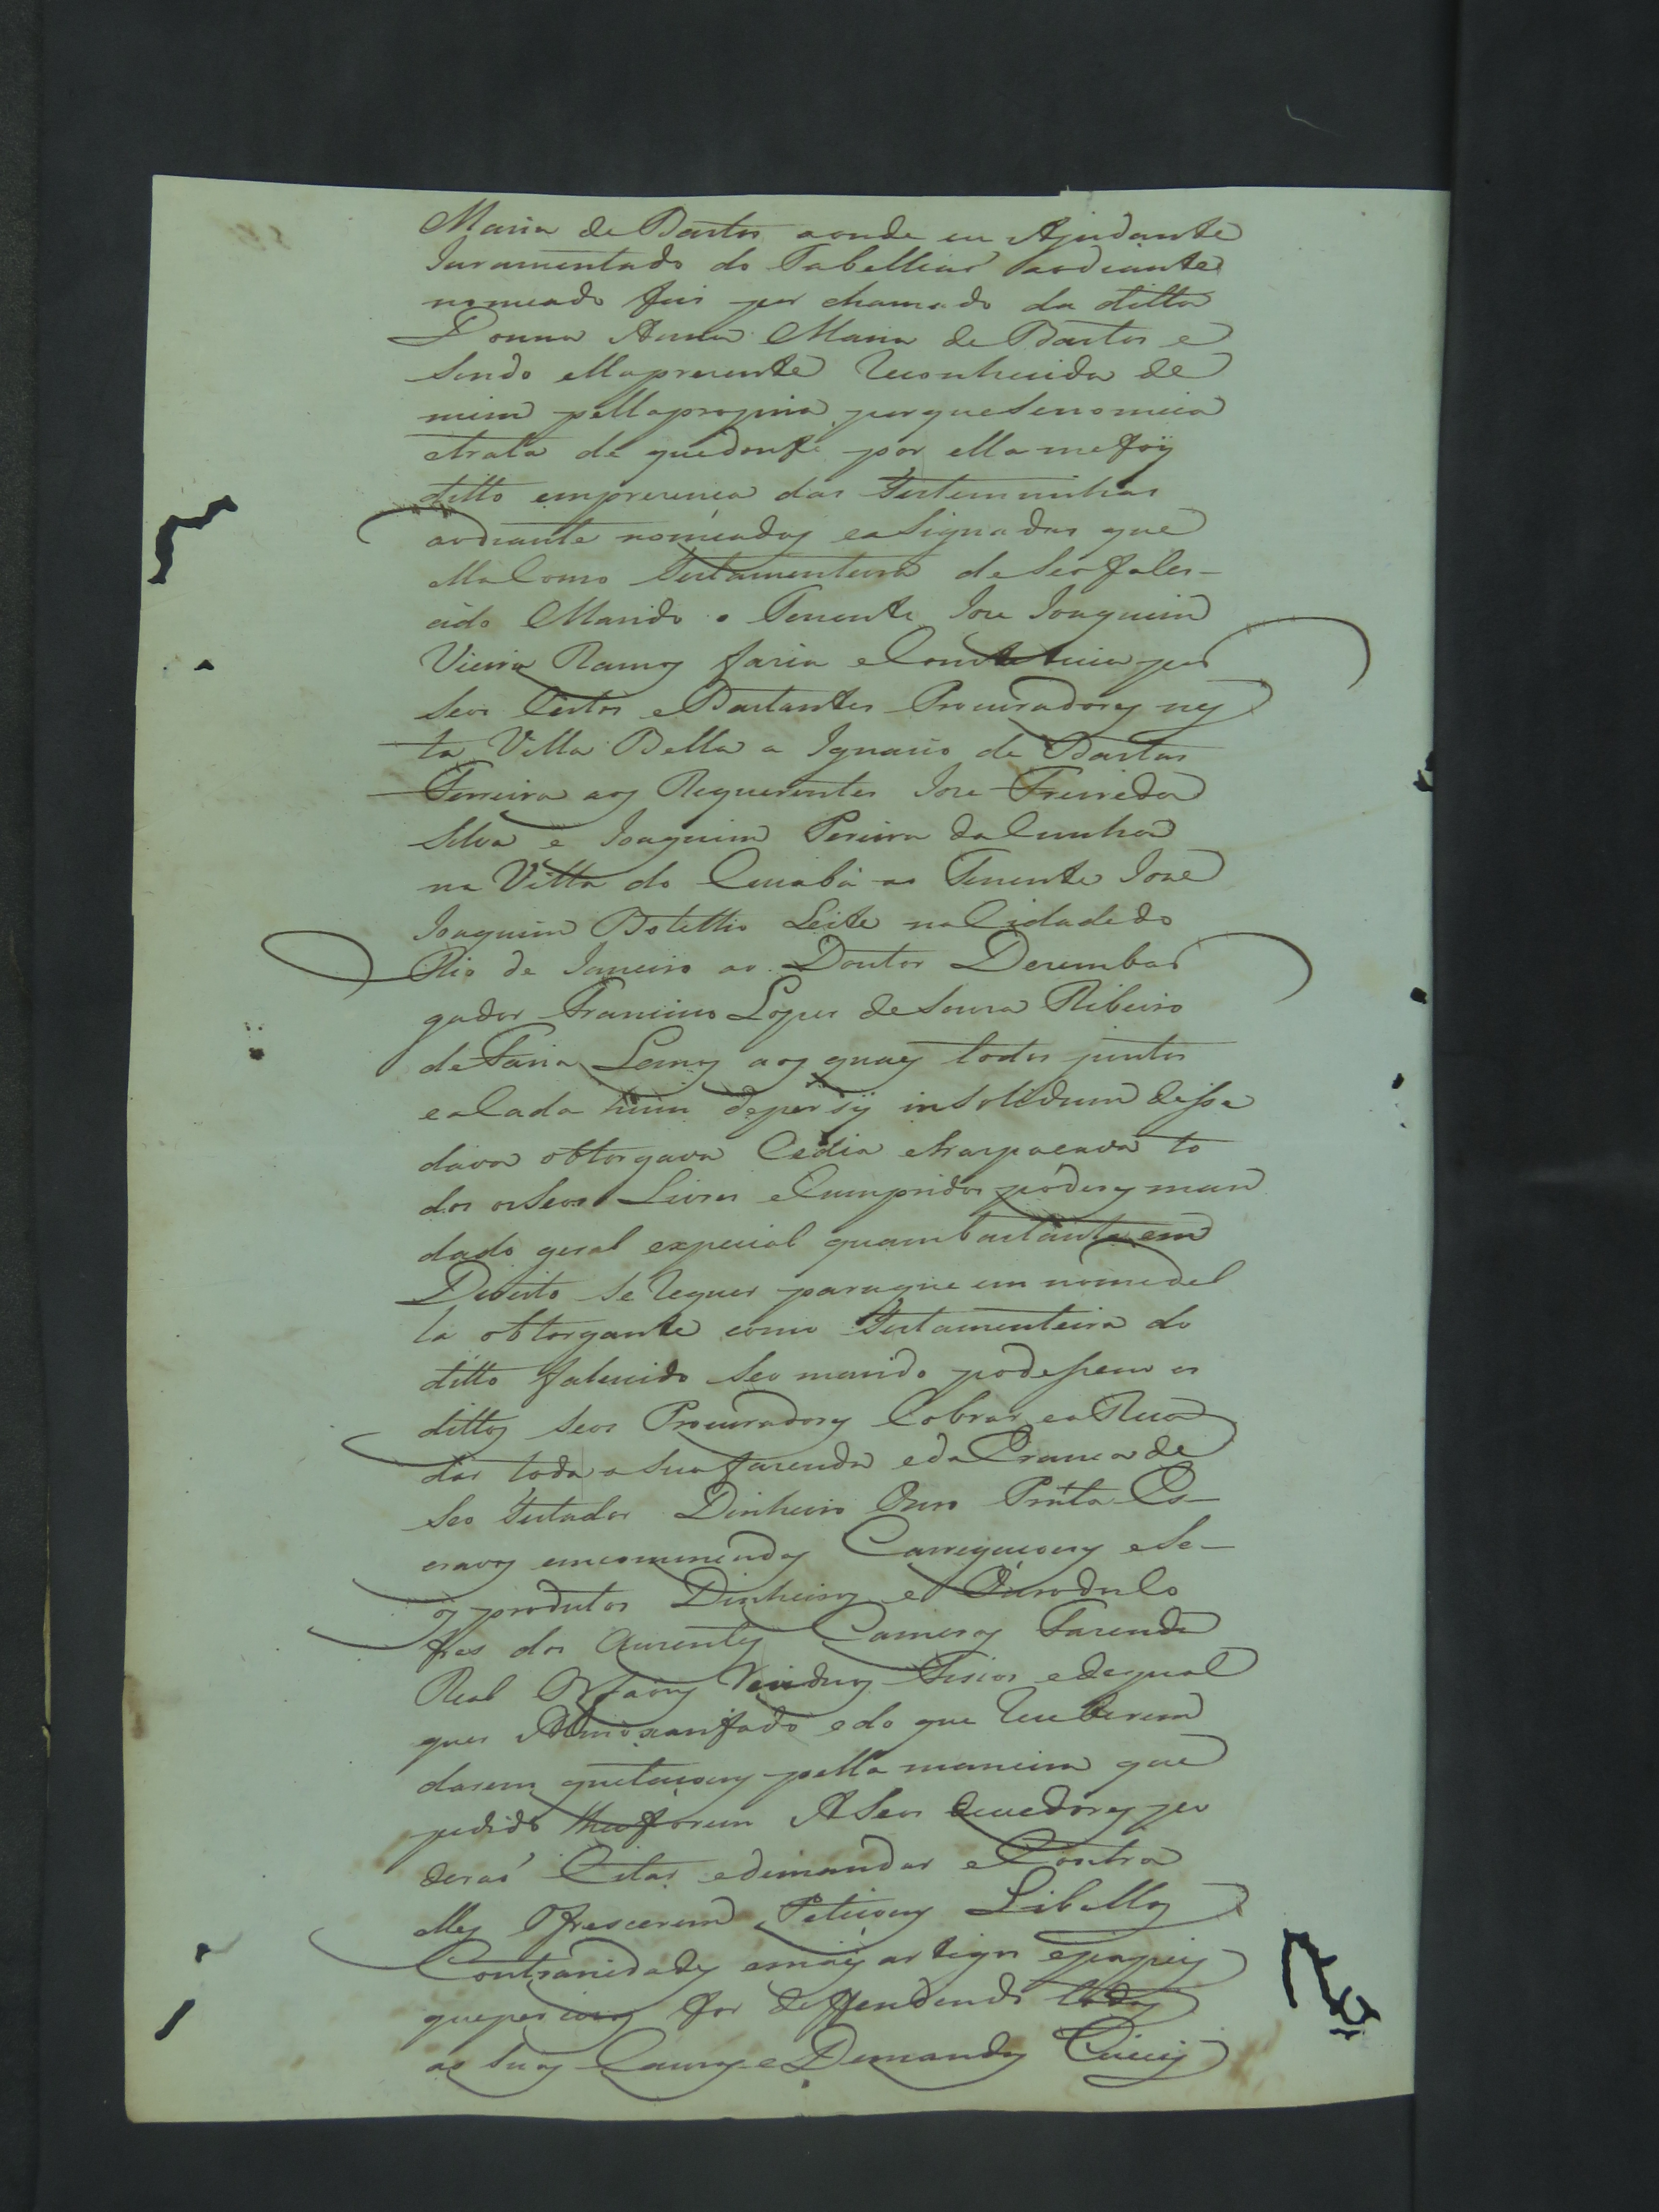 Maria de Bastos aonde eu Ajudante
Juramentado do Tabelliaõ aodiante
nomeado fui por chamado da ditta
Donna Anna Maria de Bastos e
sendo ella prezente Reconhecida de
mim pella propria porque se nomeia
etrata de quedoufé por ella mefoÿ
ditto emprezença das Testemunhas
aodiante nomeadas easignadas que
ella Como Testamenteira de Seo fales-
cido Marido o Tenente Joze Joaquim
Vieira Ramos fazia eConstetuia por
seos Certos e Bastantes Procuradores nes
ta Villa Bella a Ignacio de Bastos
Ferreira aos Requerentes Joze Freireda
Silva e Joaquim Pereira daCunha
na Villa do Cuiabá ao Tenente Joze
Joaquim Botelho Leite naCidade do
Rio de Janeiro ao Doutor Dezembar
gador Francisco Lopes de Souza Ribeiro
de Faria Lemos aos quaes todos juntos
eaCada hum deper sÿ insolidum disse
dava obtorgava Cedia etraspacava to
dos osSeos Livres eCumpridos póderes man
dado geral especial quambastante em
Direito se Requer paraque em nomedel
la obtorgante como Testamenteira do
ditto falecido seo marido podessem os
dittos seos Procuradores Cobrar eaReca
dar toda a sua fazenda edaEranca de
seo Testador Dinheiro Ouro Prata Es-
cravos emcommendas Carregacoens eSe-
os produtos Dinheiros e Ourodo Co
fres dos Auzentes Camera Fazenda
Real Orfaons Tezios edequal
quer Almoxarifado edo que Receberem
darem quitacoens pella maneira que
pedido lhesforem A Seos devedores po
deraõ Citar edemandar eContra
elles Ofrescerem Peticoens Libellos
Contrariedades emais artigos epapeis
quepercizos for deffendendo todas
as suas Cauzas e Demandas Civeis